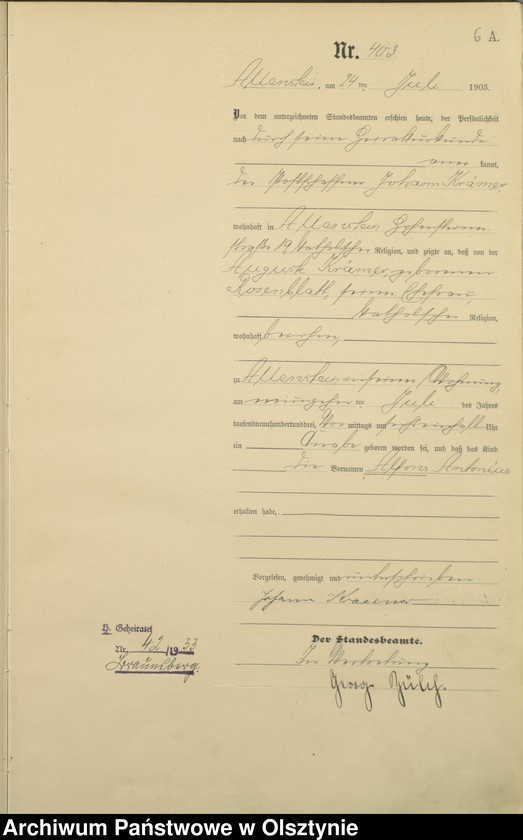 6 A.
Nr. 403
Allenstein, am 24 ten Juli 1903.
Vor dem unterzeichneten Standesbeamten erschien heute, der Persönlichkeit
nach durch seine Heiratsurkunde
aner kannt,
der Postschaffner Johann Krämer,
wohnhaft in Allenstein Hohenstein
straße 19, katholischer Religion, und zeigte an, daß von der
Auguste Krämer, geborenen
Rosenblatt, seiner Ehefrau,
katholischer Religion,
wohnhaft bei ihm,
zu Allenstein in seiner Wohnung,
am neunzehn ten Juli des Jahres
tausendneunhundertunddrei, Vor mittags um Uhr
ein Knabe geboren worden sei, und daß das Kind
die Vornamen Alfons Antonius
erhalten habe.
Vorgelesen, genehmigt und unterschrieben
Johann Kraemer
Der Standesbeamte.
In Vertretung
Georg Zülch.
H. Geheiratet
Nr. 42/1933
Braunsberg.
Archiwum Państwowe w Olsztynie